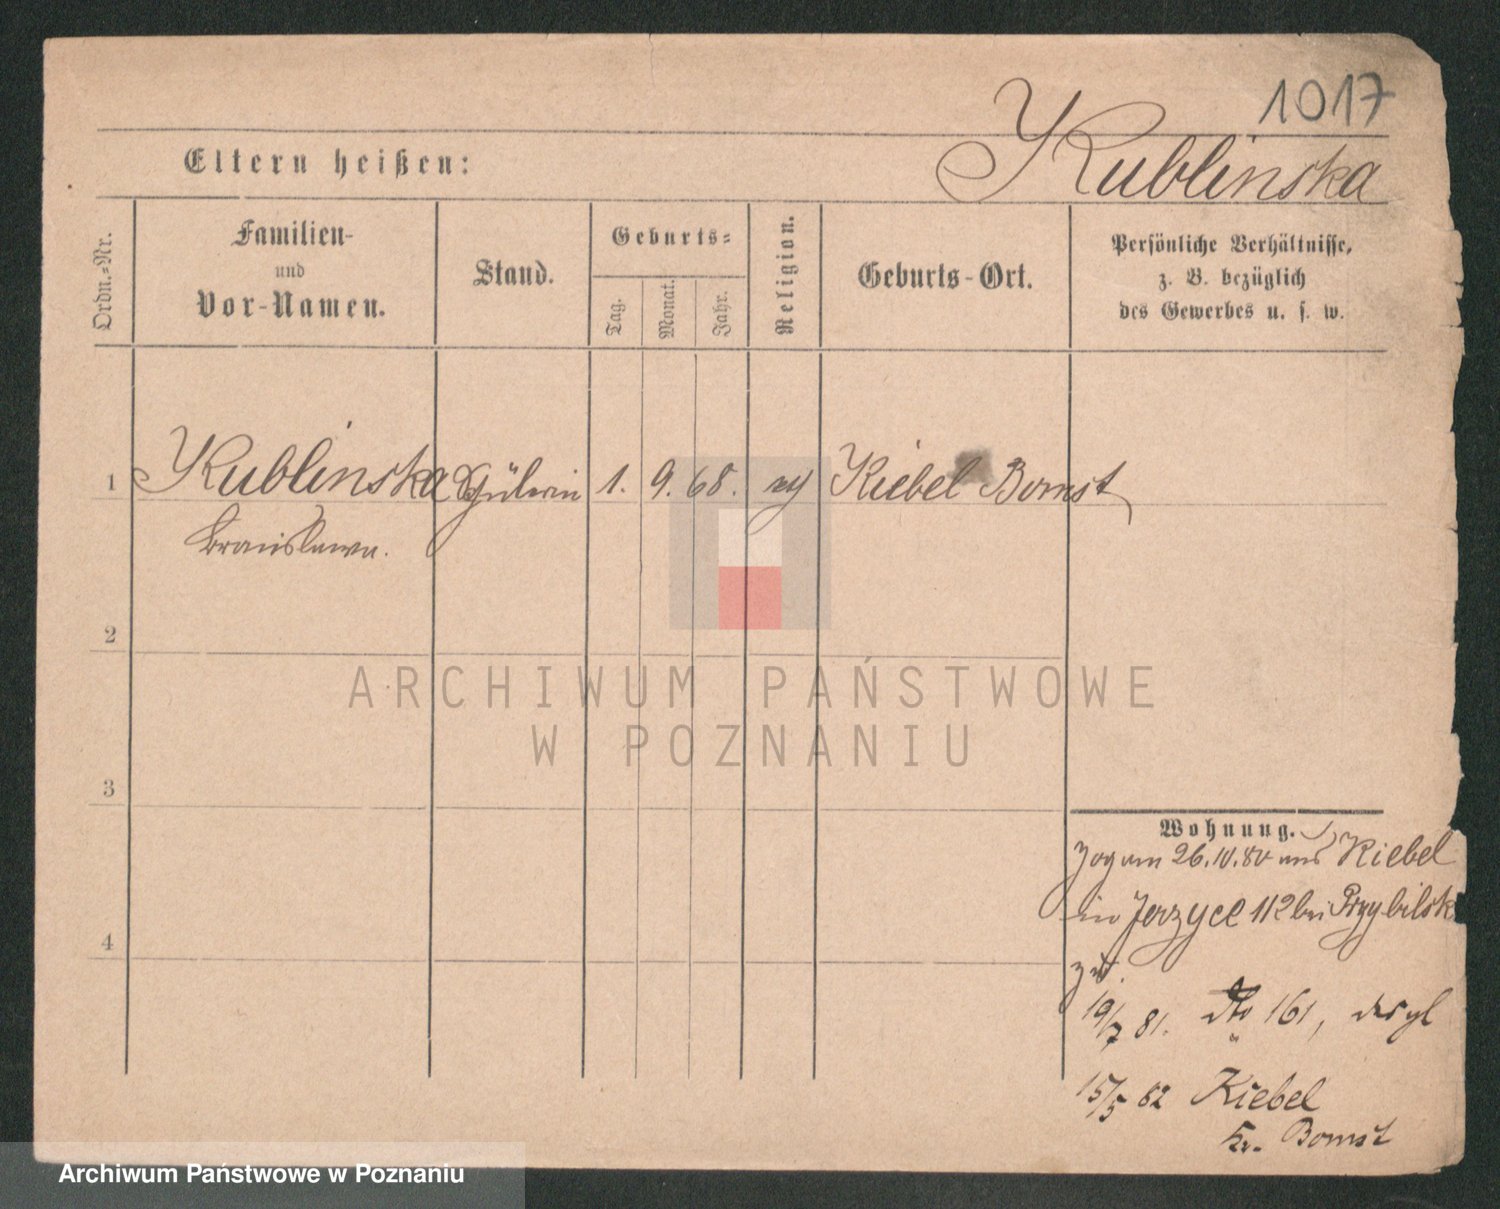 1017
Kublinska
Eltern heißen:
Ordn.-Nr.
Familien-
und
Vor-Namen.
Stand.
Geburts-
Tag.
Monat.
Jahr.
Religion.
Geburts-Ort.
Persönliche Verhältnisse,
z. B. bezüglich
des Gewerbes u. s. w.
1 Kublinska Schülerin 1. 9. 68. Kiebel Bomst
Bronislawa.
2
3
4
Wohnung.
Zog am 26.10.80 aus Kiebel
in Jerzyce 112 bei Przybilsk
zu.
19/7 81. dto 161, desgl
15/5 82 Kiebel
Kr. Bomst
ARCHIWUM PAŃSTWOWE
W POZNANIU
Archiwum Państwowe w Poznaniu